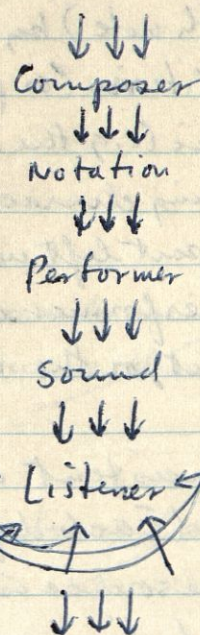 Composer
Notation
Performer
Sound
Listener